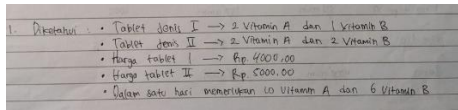 1. Diketahui : • Tablet jenis I → 2 Vitamin A dan 1 Vitamin B
• Tablet jenis II → 2 Vitamin A dan 2 Vitamin B
• Harga tablet I → Rp. 4000,00
• Harga tablet II → Rp. 5000,00
• Dalam satu hari memerlukan 10 Vitamin A dan 6 Vitamin B